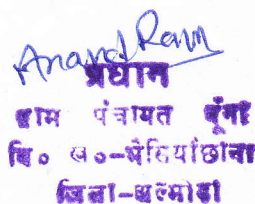 Anand Ram
प्रधान
ग्राम पंचायत बूंगा
वि० ख०-भैसियाछाना
जिला-अल्मोडा